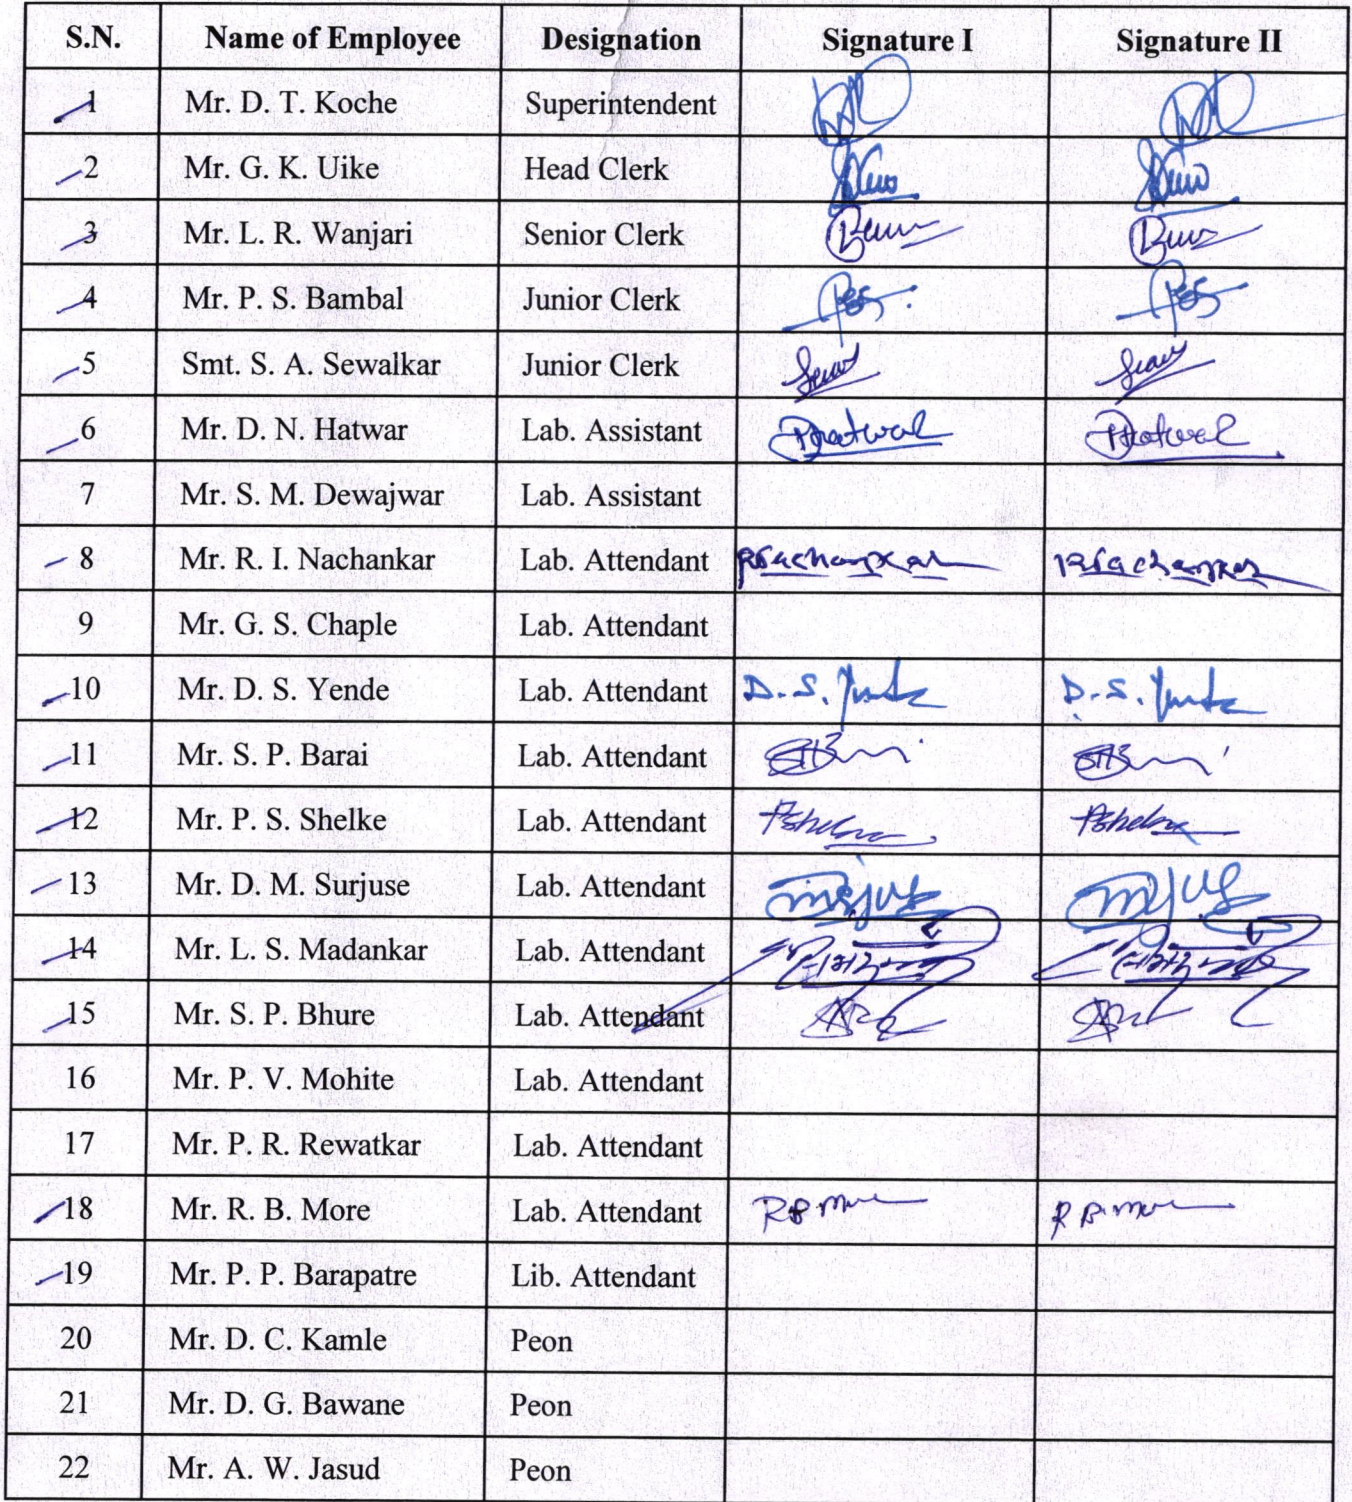 S.N. Name of Employee Designation Signature I Signature II
1 Mr. D. T. Koche Superintendent
2 Mr. G. K. Uike Head Clerk
3 Mr. L. R. Wanjari Senior Clerk
4 Mr. P. S. Bambal Junior Clerk
5 Smt. S. A. Sewalkar Junior Clerk
6 Mr. D. N. Hatwar Lab. Assistant
7 Mr. S. M. Dewajwar Lab. Assistant
8 Mr. R. I. Nachankar Lab. Attendant
9 Mr. G. S. Chaple Lab. Attendant
10 Mr. D. S. Yende Lab. Attendant D. S. D. S.
11 Mr. S. P. Barai Lab. Attendant
12 Mr. P. S. Shelke Lab. Attendant
13 Mr. D. M. Surjuse Lab. Attendant
14 Mr. L. S. Madankar Lab. Attendant
15 Mr. S. P. Bhure Lab. Attendant
16 Mr. P. V. Mohite Lab. Attendant
17 Mr. P. R. Rewatkar Lab. Attendant
18 Mr. R. B. More Lab. Attendant
19 Mr. P. P. Barapatre Lib. Attendant
20 Mr. D. C. Kamle Peon
21 Mr. D. G. Bawane Peon
22 Mr. A. W. Jasud Peon